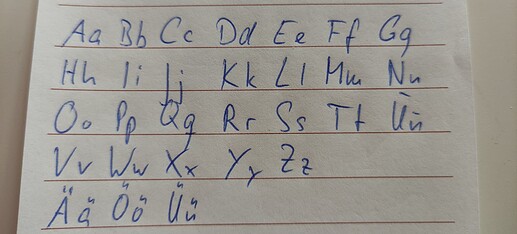 Aa Bb Cc Dd Ee Ff Gg
Hh Ii Jj Kk Ll Mm Nn
Oo Pp Qq Rr Ss Tt Ūū
Vv Ww Xx Yy Zz
Ää Öö Üü